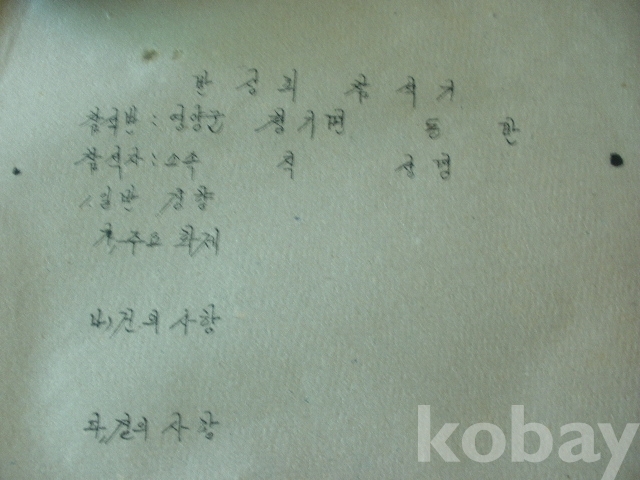 반 상회 참석기
참석반: 영양군 청기면 동 반
참석자: 소속 직 성명
1. 일반 경향
가, 주요 화제
나, 건의 사항
다, 결의 사항
kobay